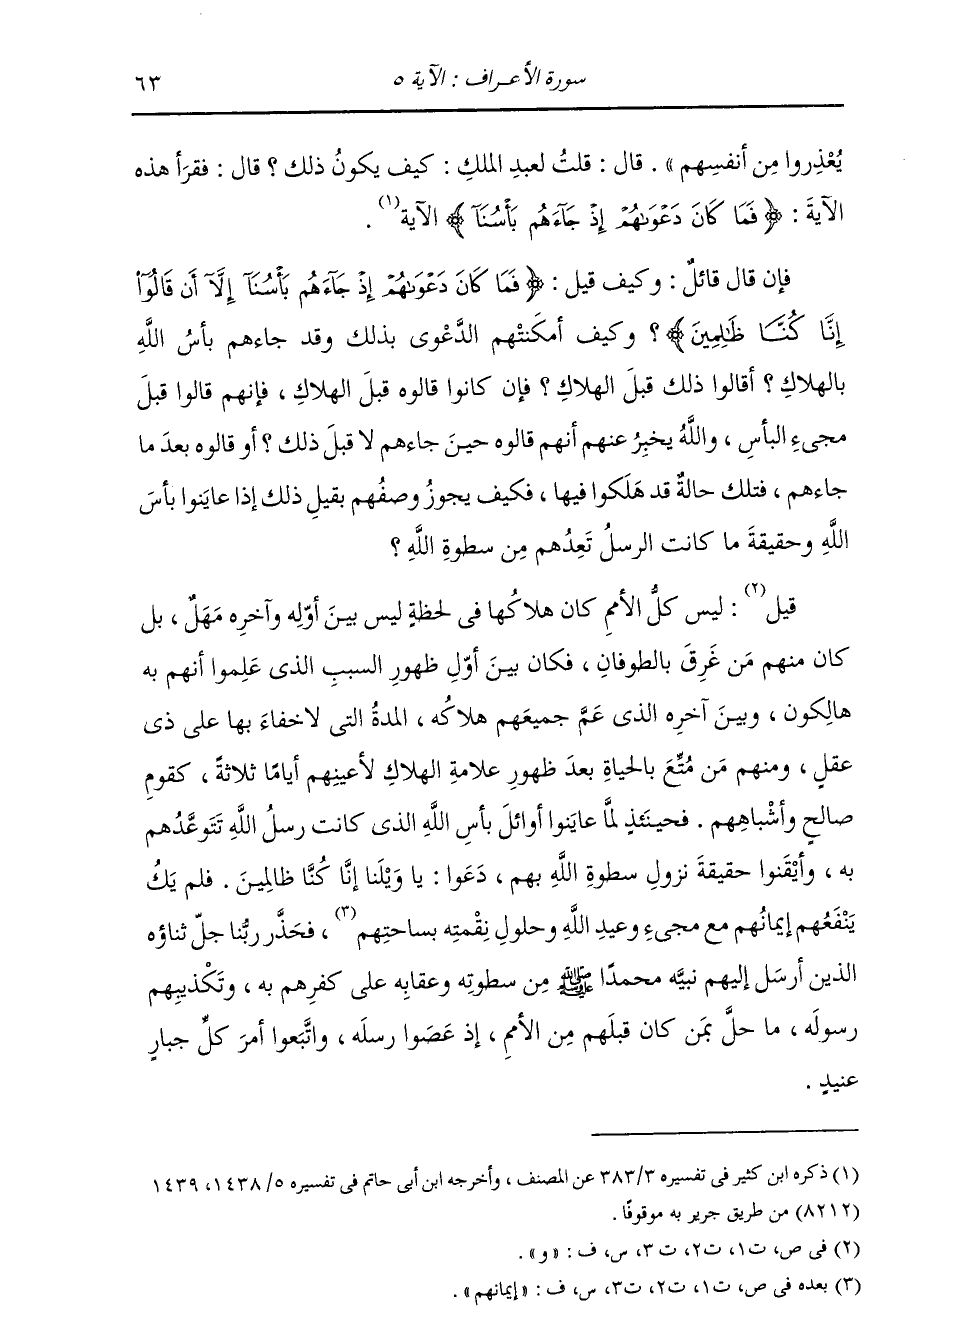 سورة الأعراف : الآية ٥ ٦٣
يُعْذِروا مِن أنفسِهم » . قال : قلتُ لعبدِ الملكِ : كيف يكونُ ذلك ؟ قال : فقرَأ هذه
الآيةَ : ﴿ فَمَا كَانَ دَعْوَىٰهُمْ إِذْ جَآءَهُم بَأْسُنَآ ﴾ الآية(١) .
فإن قال قائلٌ : وكيف قيل : ﴿ فَمَا كَانَ دَعْوَىٰهُمْ إِذْ جَآءَهُم بَأْسُنَآ إِلَّآ أَن قَالُوٓا۟
إِنَّا كُنَّا ظَٰلِمِينَ ﴾ ؟ وكيف أمكَنتْهم الدَّعْوى بذلك وقد جاءهم بأسُ اللَّهِ
بالهلاكِ ؟ أقالوا ذلك قبلَ الهلاكِ ؟ فإن كانوا قالوه قبلَ الهلاكِ ، فإنهم قالوا قبلَ
مجىءِ البأسِ ، واللَّهُ يخبِرُ عنهم أنهم قالوه حينَ جاءهم لا قبلَ ذلك ؟ أو قالوه بعدَ ما
جاءهم ، فتلك حالةٌ قد هَلَكوا فيها ، فكيف يجوزُ وصفُهم بقيلِ ذلك إذا عايَنوا بأسَ
اللَّهِ وحقيقةَ ما كانت الرسلُ تَعِدُهم مِن سطوةِ اللَّهِ ؟
قيل(٢) : ليس كلُّ الأممِ كان هلاكُها فى لحظةٍ ليس بينَ أوّلِه وآخرِه مَهَلٌ ، بل
كان منهم مَن غَرِقَ بالطوفانِ ، فكان بينَ أوّلِ ظهورِ السببِ الذى عَلِموا أنهم به
هالِكون ، وبينَ آخرِه الذى عَمَّ جميعَهم هلاكُه ، المدةُ التى لا خفاءَ بها على ذى
عقلٍ ، ومنهم مَن مُتِّعَ بالحياةِ بعدَ ظهورِ علامةِ الهلاكِ لأعينِهم أيامًا ثلاثةً ، كقومِ
صالحٍ وأشْباهِهم . فحينَئذٍ لمَّا عايَنوا أوائلَ بأسِ اللَّهِ الذى كانت رسلُ اللَّهِ تَتَوعَّدُهم
به ، وأيْقَنوا حقيقةَ نزولِ سطوةِ اللَّهِ بهم ، دَعَوا : يا وَيْلَنا إنَّا كُنَّا ظالِمِينَ . فلم يَكُ
يَنْفَعُهم إيمانُهم مع مجىءِ وعيدِ اللَّهِ وحلولِ نِقْمتِه بساحتِهم(٣) ، فحَذَّر ربُّنا جلّ ثناؤه
الذين أرسَل إليهم نبيَّه محمدًا ﷺ مِن سطوتِه وعقابِه على كفرِهم به ، وتَكْذيبِهم
رسولَه ، ما حلَّ بمَن كان قبلَهم مِن الأممِ ، إذ عَصَوا رسلَه ، واتَّبَعوا أمرَ كلِّ جبارٍ
عنيدٍ .
(١) ذكره ابن كثير فى تفسيره ٣٨٣/٣ عن المصنف ، وأخرجه ابن أبى حاتم فى تفسيره ١٤٣٨/٥، ١٤٣٩
(٨٢١٢) من طريق جرير به موقوفًا .
(٢) فى ص، ت١، ت٢، ت٣، س، ف : «و» .
(٣) بعده فى ص، ت١، ت٢، ت٣، س، ف : «إيمانهم» .